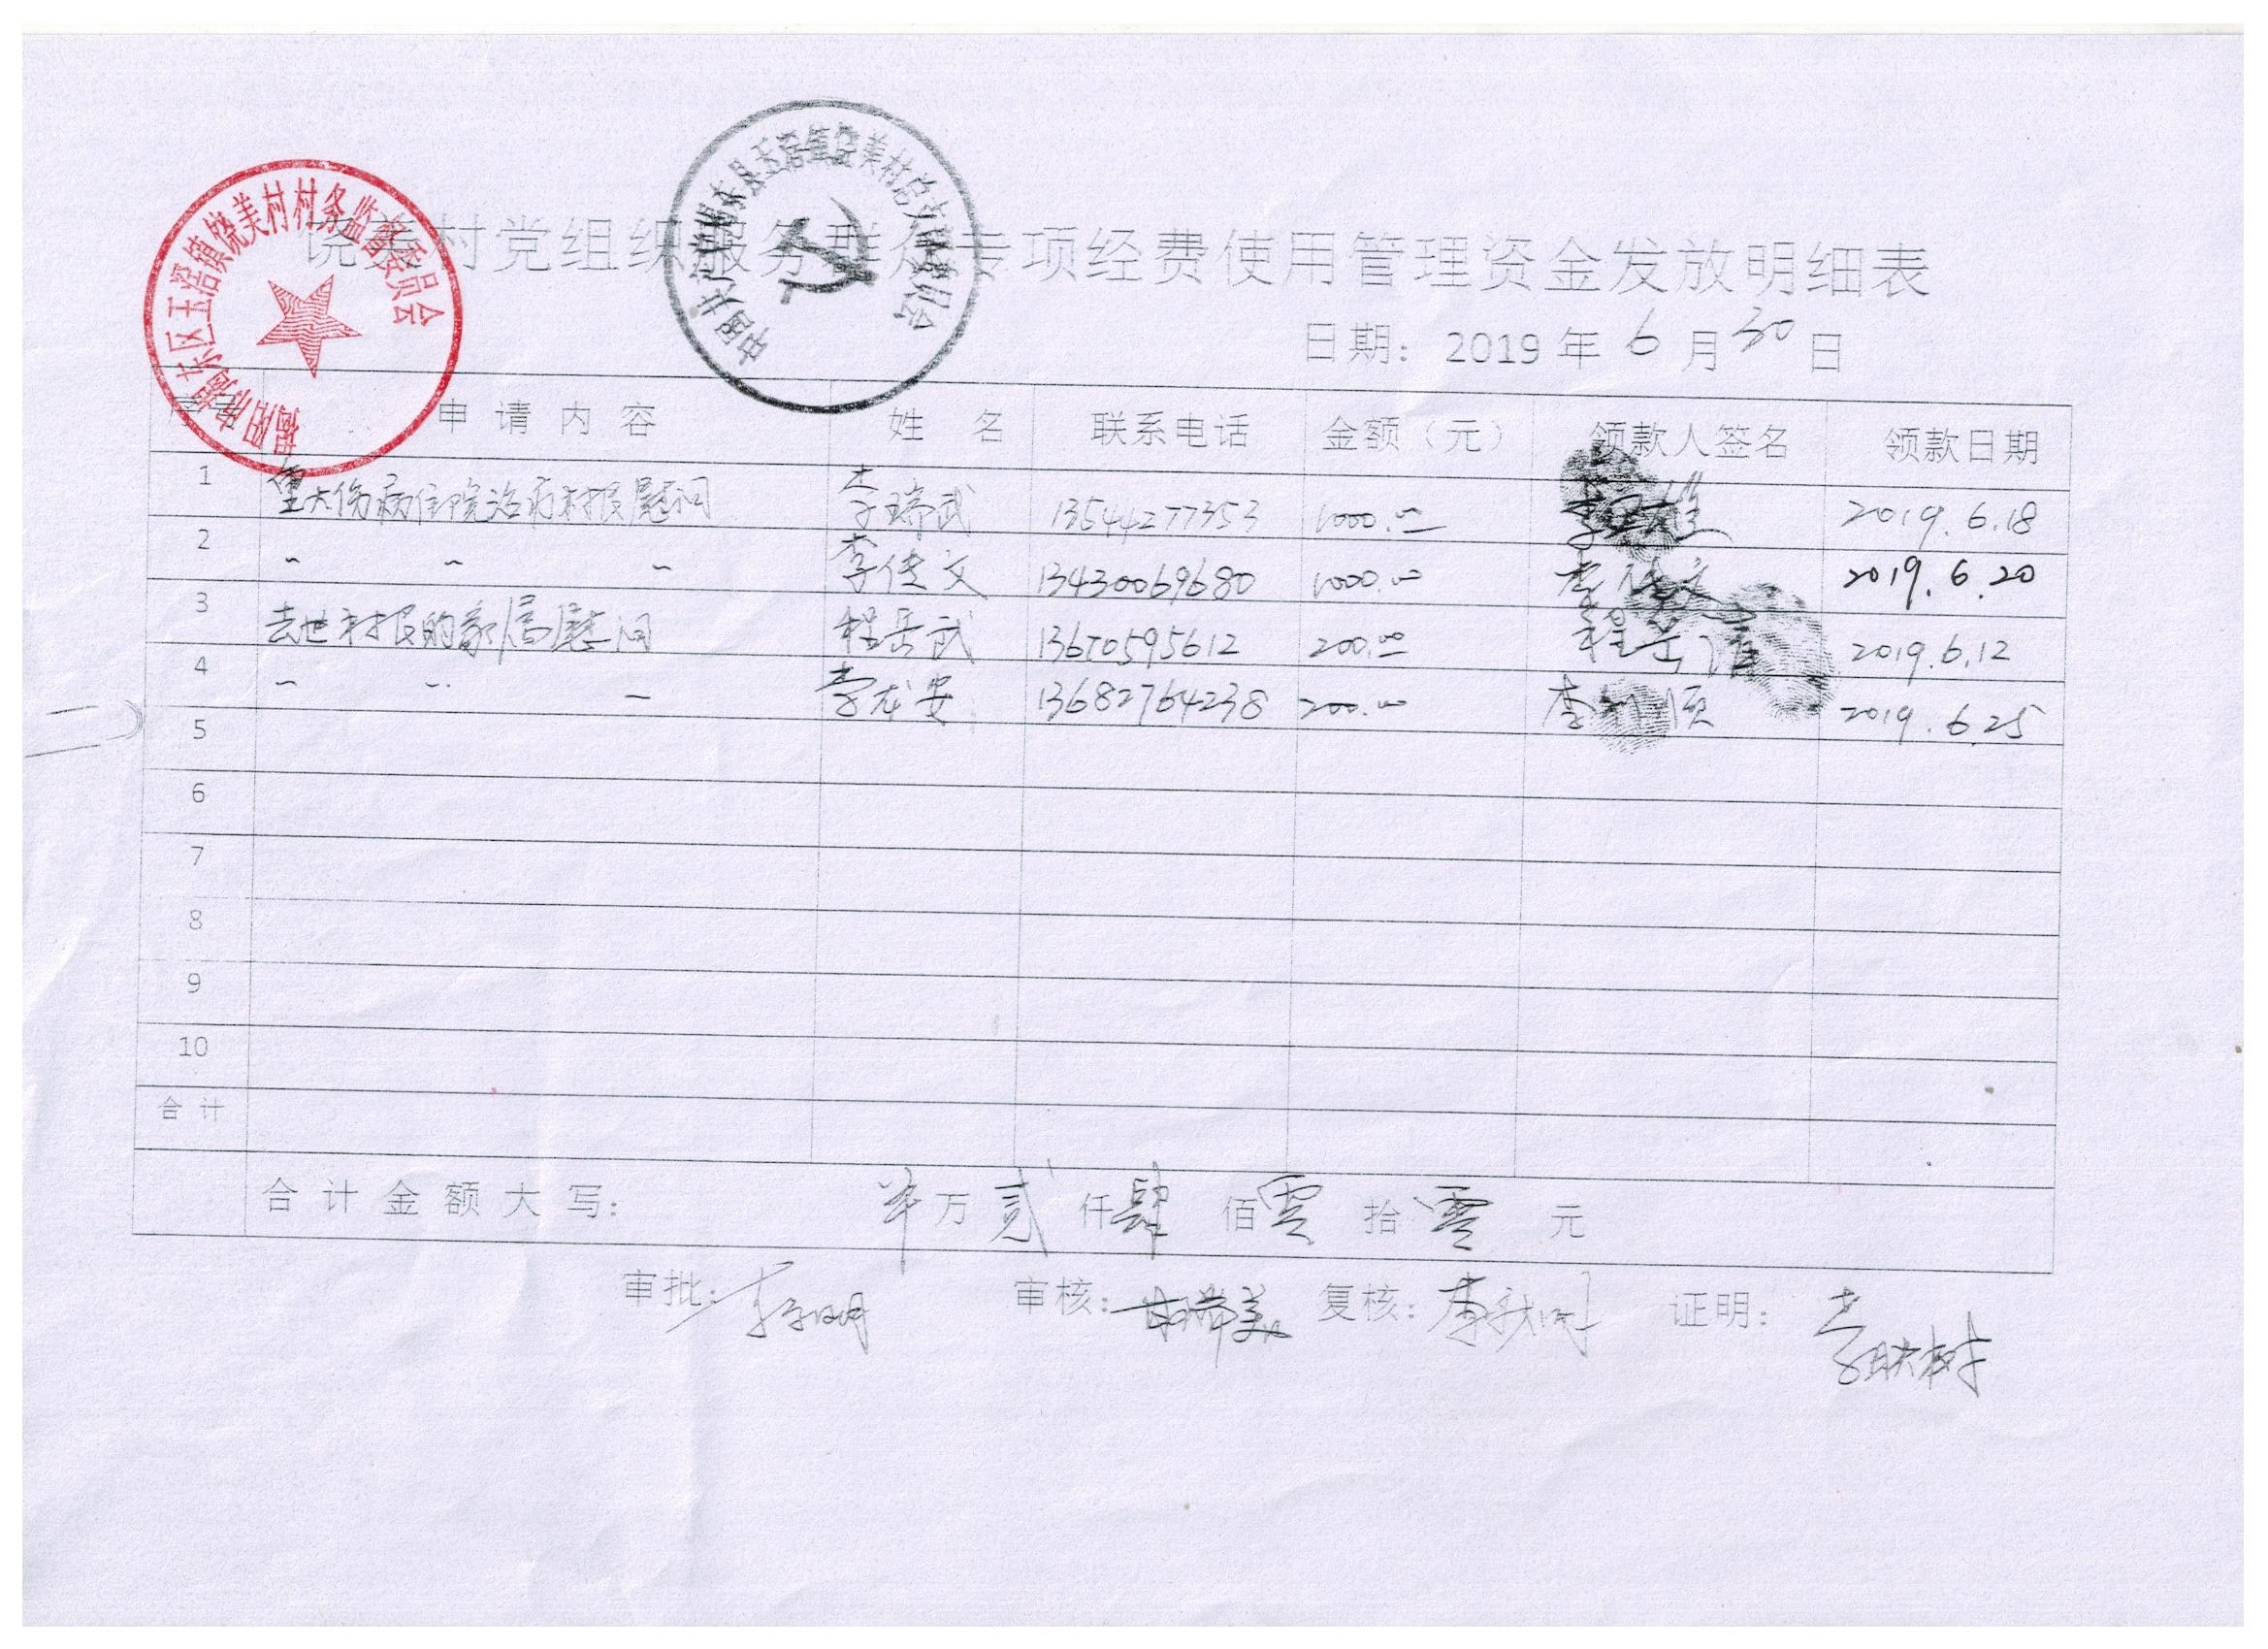 揭阳市揭东区玉滘镇饶美村村务监督委员会
中国共产党揭东县玉滘镇饶美村总支部委员会
饶美村党组织服务群众专项经费使用管理资金发放明细表
日期：2019年6月30日
序号 申请内容 姓名 联系电话 金额（元） 领款人签名 领款日期
1 重大伤病住院治疗村民慰问 李瑞武 13544277353 1000.00 2019.6.18
2 〃 〃 〃 李佳文 13430069680 1000.00 李佳文 2019.6.20
3 去世村民的家属慰问 程岳武 13670595612 200.00 2019.6.12
4 〃 〃 〃 李龙安 13682764238 200.00 2019.6.25
5
6
7
8
9
10
合计
合计金额大写： 万贰仟肆佰零拾零元
审批： 审核： 复核： 证明：李联树